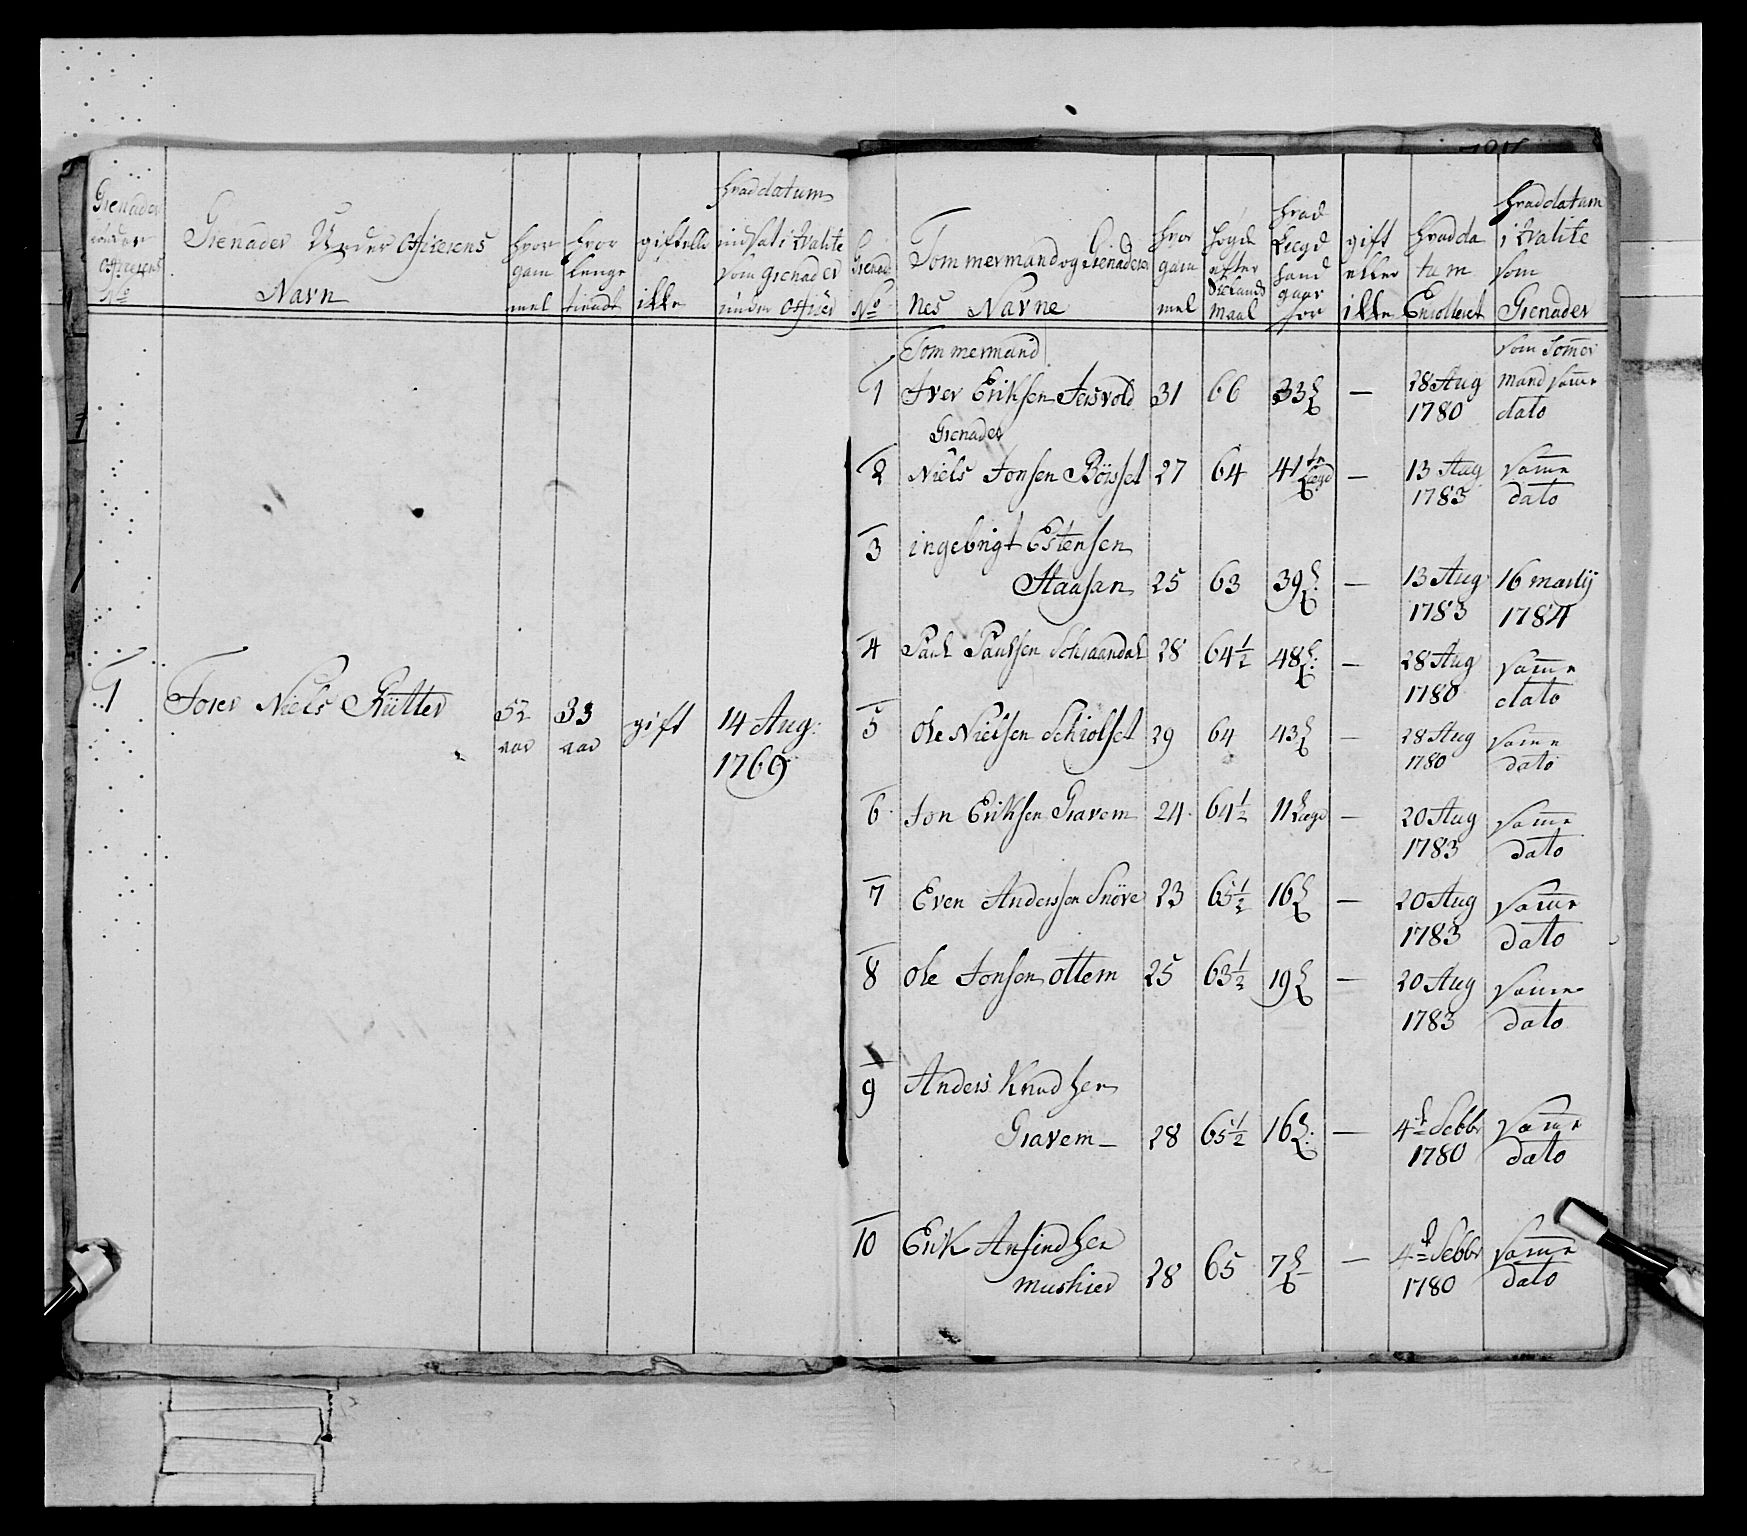 Grenader Under Officerens No
Grenader Under Officerens Navn
hvor gam mel
hvor lenge tient
gift elle ikke
hvad datum indsat i Qvalite som Grenader under Officer
1 Forer Niels Rütter 52 aar 33 aar gift 14 Aug: 1769
Grenad No
Tommermand og Grenaderer
nes Navne
hvor gam mel
høyde efter Siælands maal
hvad Lægd hand gaar for
gift eller ikke
hvad da tum Enrolleret
hvad datum i Qvalite som Grenader
Tommermand
1 Iver Eriksen 31 66 33 L — 28 Aug 1780 som Tømer mand samme dato
Grenader
2 Niels Jonsen Börset 27 64 41 Lægd — 13 Aug 1783 samme dato
3 ingebrigt Estensen
Staasan 25 63 39 L: — 13 Aug 1783 16 martij 1784
4 Paul Paulsen 28 64½ 48 L: — 28 Aug 1780 samme dato
5 Ole Nielsen Schiolset 29 64 43 L — 28 Aug 1780 samme dato
6 Jon Eriksen Gravem 24 64½ 11 Lægd — 20 Aug 1783 samme dato
7 Even Anderssen Snöve 23 65½ 16 L — 20 Aug 1783 samme dato
8 Ole Jonsen ottem 25 63½ 19 L — 20 Aug 1783 samme dato
9 Anders Knudsen
Gravem — 28 65½ 16 L: — 4d Sebbr 1780 samme dato
10 Erik Anfindsen
mushier 28 65 7 L — 4d Sebbr 1780 samme dato